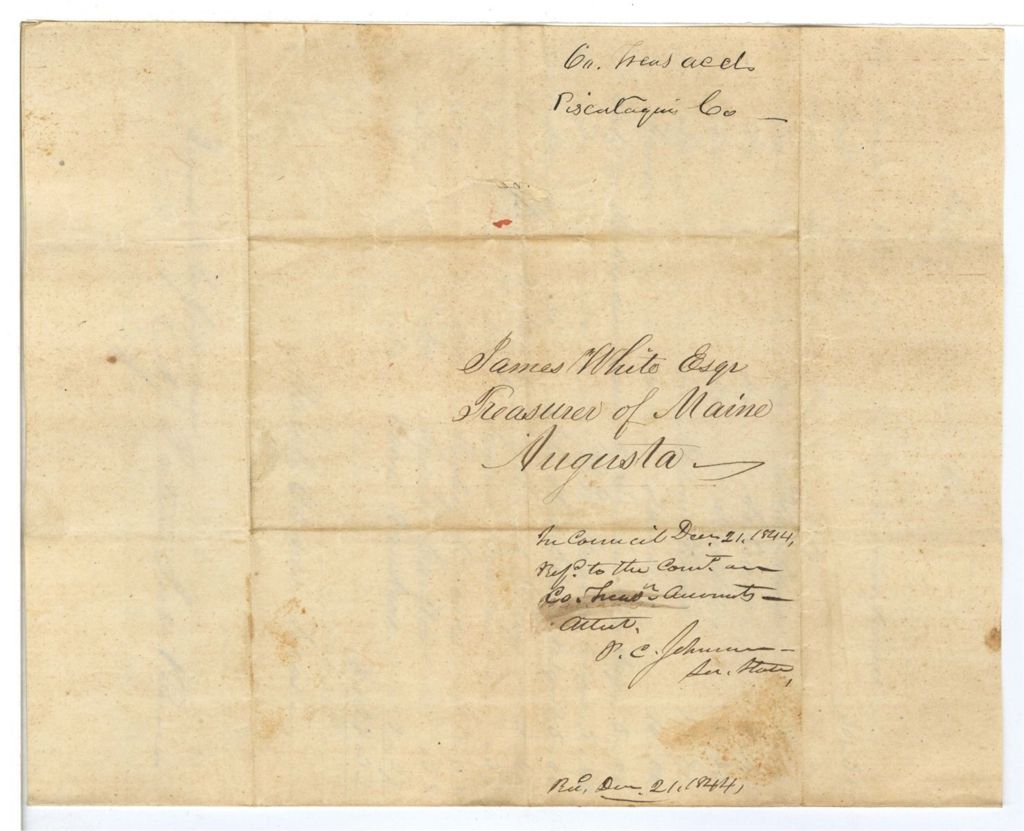 Co. Treas acct.
Piscataquis Co
James White Esqr
Treasurer of Maine
Augusta
In Council Decr. 21, 1844,
Refd. to the Comt. on
Co. Treas'rs Accounts
Attest.
P. C. Johnson
Sec. State,
Rd. Dec. 21, 1844,